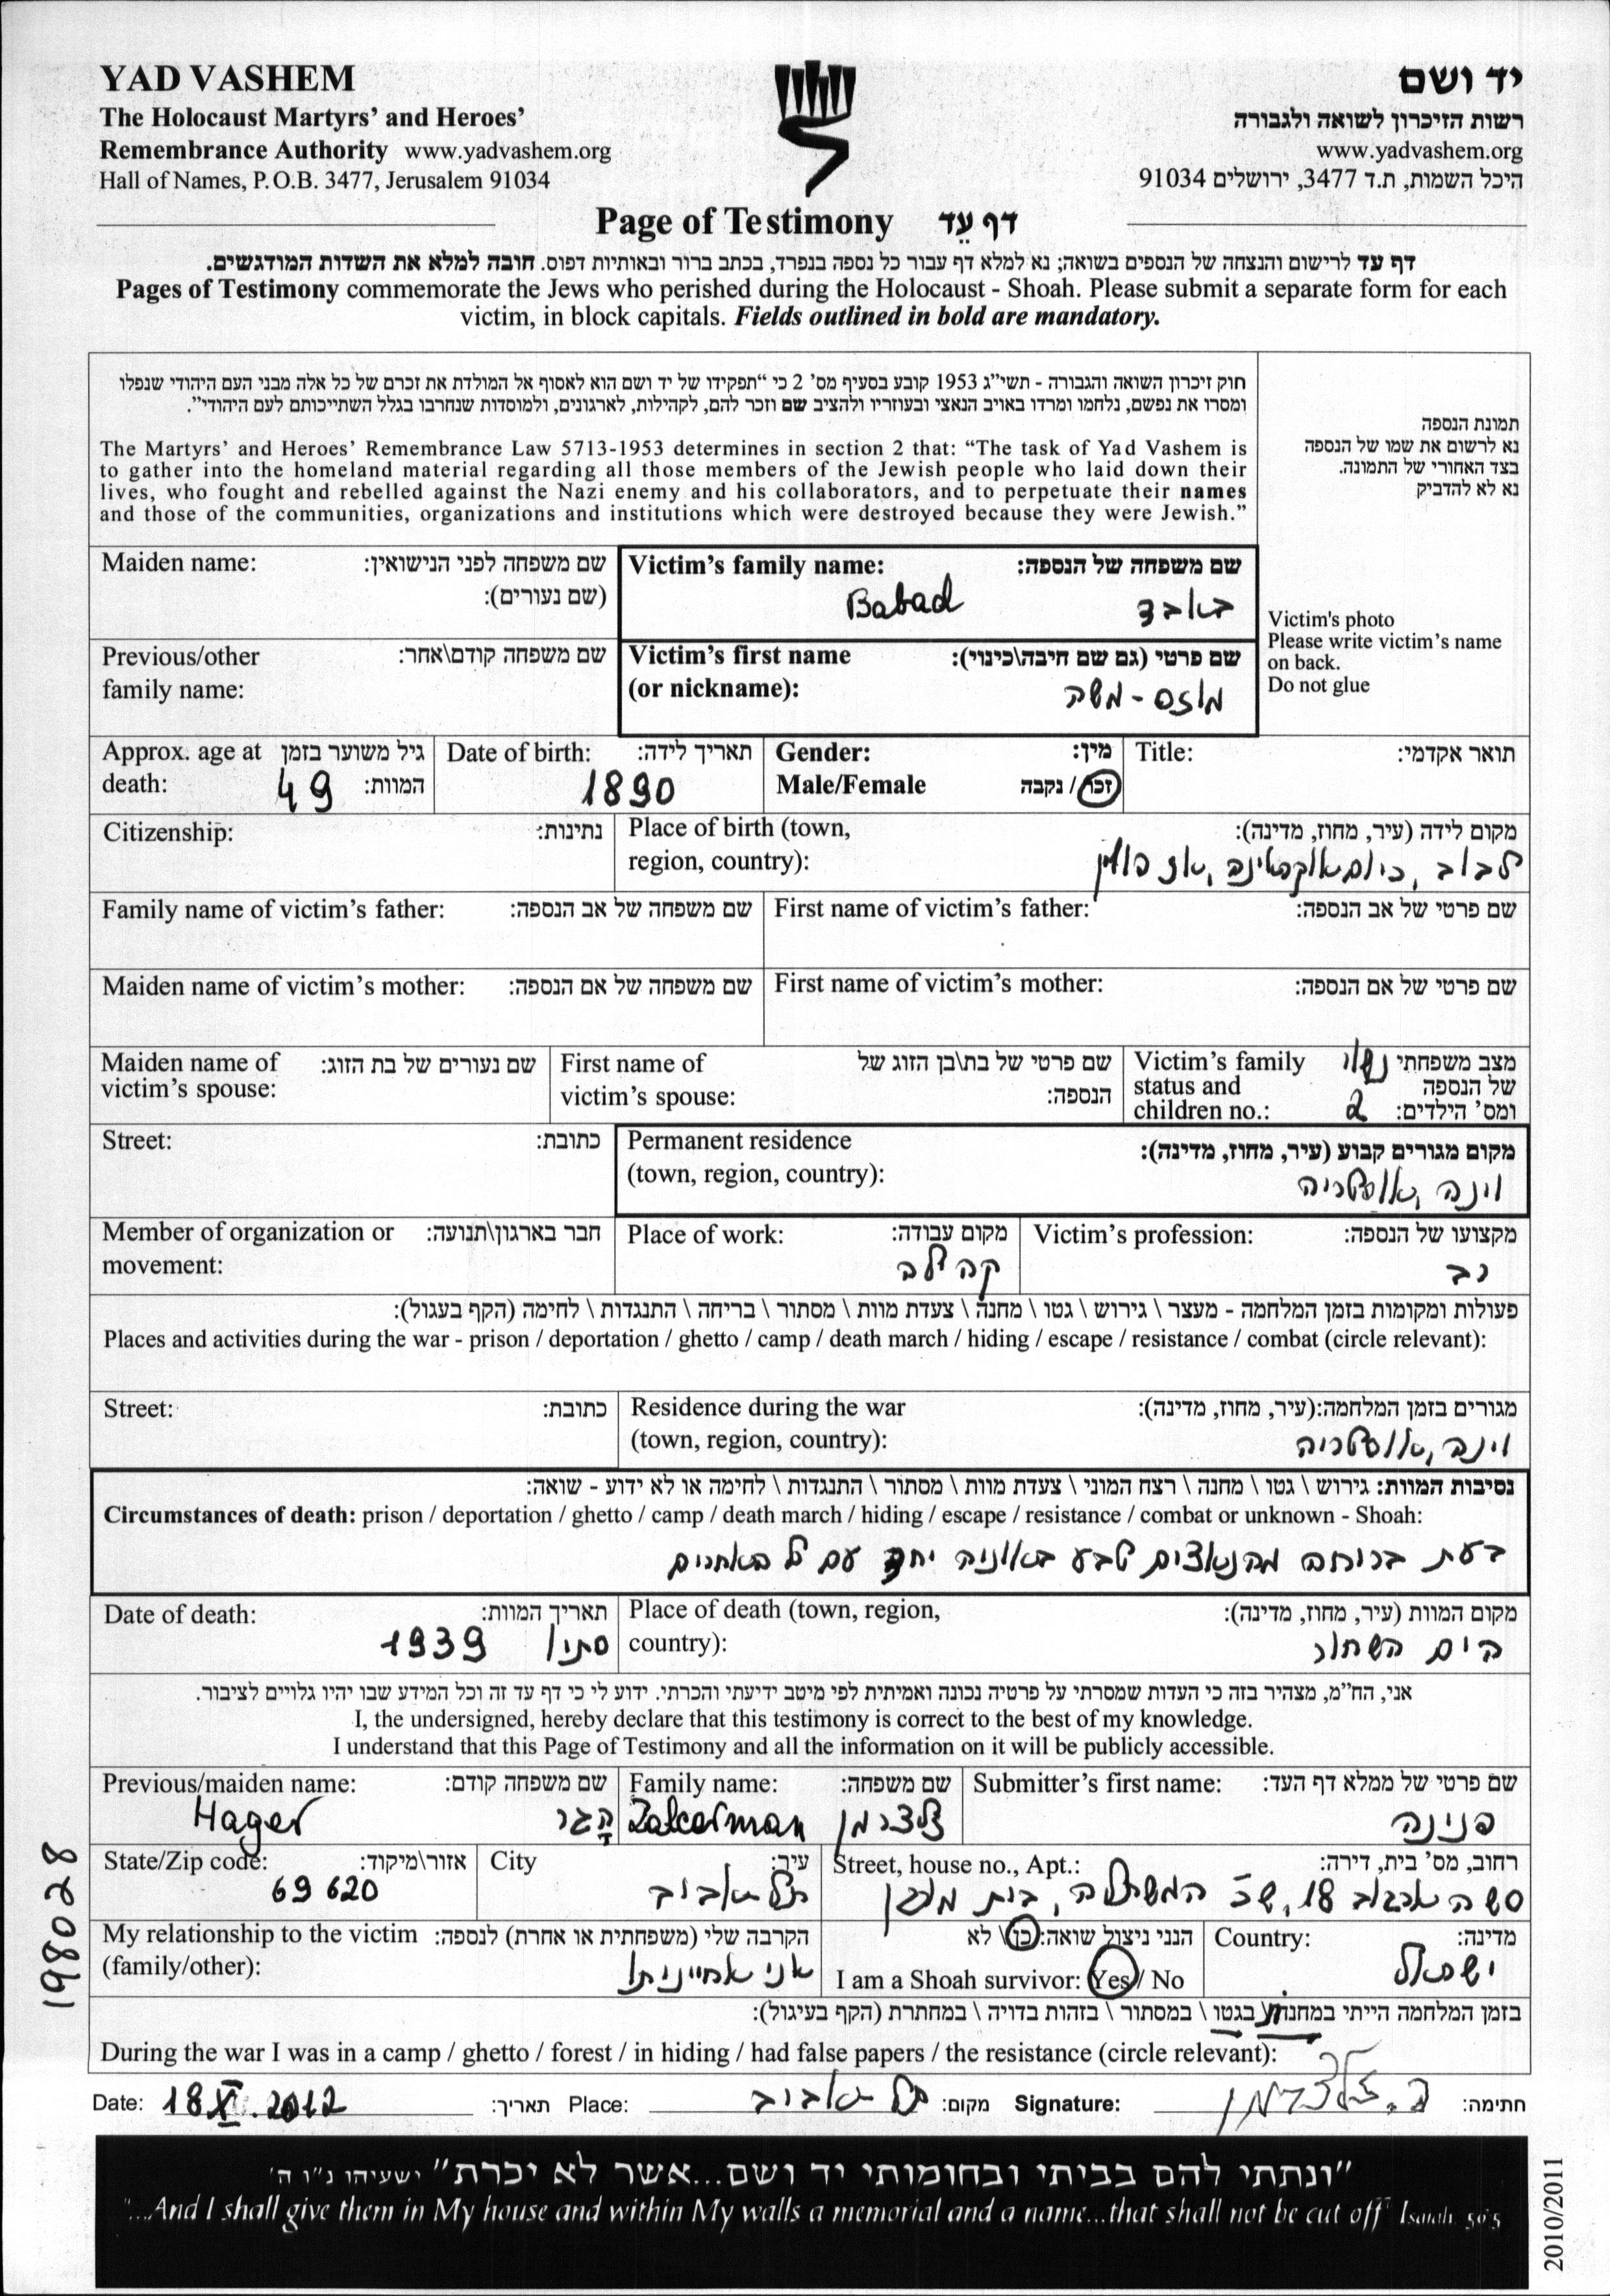 YAD VASHEM
The Holocaust Martyrs' and Heroes'
Remembrance Authority www.yadvashem.org
Hall of Names, P.O.B. 3477, Jerusalem 91034
יד ושם
רשות הזיכרון לשואה ולגבורה
www.yadvashem.org
היכל השמות, ת.ד 3477, ירושלים 91034
Page of Testimony דף עֵד
דף עד לרישום והנצחה של הנספים בשואה; נא למלא דף עבור כל נספה בנפרד, בכתב ברור ובאותיות דפוס. חובה למלא את השדות המודגשים.
Pages of Testimony commemorate the Jews who perished during the Holocaust - Shoah. Please submit a separate form for each
victim, in block capitals. Fields outlined in bold are mandatory.
חוק זיכרון השואה והגבורה - תשי"ג 1953 קובע בסעיף מס' 2 כי "תפקידו של יד ושם הוא לאסוף אל המולדת את זכרם של כל אלה מבני העם היהודי שנפלו
ומסרו את נפשם, נלחמו ומרדו באויב הנאצי ובעוזריו ולהציב שם וזכר להם, לקהילות, לארגונים, ולמוסדות שנחרבו בגלל השתייכותם לעם היהודי".
The Martyrs' and Heroes' Remembrance Law 5713-1953 determines in section 2 that: "The task of Yad Vashem is
to gather into the homeland material regarding all those members of the Jewish people who laid down their
lives, who fought and rebelled against the Nazi enemy and his collaborators, and to perpetuate their names
and those of the communities, organizations and institutions which were destroyed because they were Jewish."
תמונת הנספה
נא לרשום את שמו של הנספה
בצד האחורי של התמונה.
נא לא להדביק
Victim's photo
Please write victim's name
on back.
Do not glue
Maiden name: שם משפחה לפני הנישואין:
(שם נעורים):
Victim's family name: שם משפחה של הנספה:
Babad באבד
Previous/other שם משפחה קודם\אחר:
family name:
Victim's first name שם פרטי (גם שם חיבה\כינוי):
(or nickname): מוזס - משה
Approx. age at גיל משוער בזמן
death: 49 המוות:
Date of birth: תאריך לידה:
1890
Gender: מין:
Male/Female זכר / נקבה
Title: תואר אקדמי:
Citizenship: נתינות:
Place of birth (town, מקום לידה (עיר, מחוז, מדינה):
region, country): לבוב, כיום אוקראינה, אז פולין
Family name of victim's father: שם משפחה של אב הנספה:
First name of victim's father: שם פרטי של אב הנספה:
Maiden name of victim's mother: שם משפחה של אם הנספה:
First name of victim's mother: שם פרטי של אם הנספה:
Maiden name of שם נעורים של בת הזוג:
victim's spouse:
First name of שם פרטי של בת\בן הזוג של
victim's spouse: הנספה:
Victim's family מצב משפחתי נשוי
status and של הנספה
children no.: ומס' הילדים: 2
Street: כתובת:
Permanent residence מקום מגורים קבוע (עיר, מחוז, מדינה):
(town, region, country): וינה, אוסטריה
Member of organization or חבר בארגון\תנועה:
movement:
Place of work: מקום עבודה:
קהילה
Victim's profession: מקצועו של הנספה:
רב
פעולות ומקומות בזמן המלחמה - מעצר \ גירוש \ גטו \ מחנה \ צעדת מוות \ מסתור \ בריחה \ התנגדות \ לחימה (הקף בעגול):
Places and activities during the war - prison / deportation / ghetto / camp / death march / hiding / escape / resistance / combat (circle relevant):
Street: כתובת:
Residence during the war מגורים בזמן המלחמה:(עיר, מחוז, מדינה):
(town, region, country): וינה, אוסטריה
נסיבות המוות: גירוש \ גטו \ מחנה \ רצח המוני \ צעדת מוות \ מסתור \ התנגדות \ לחימה או לא ידוע - שואה:
Circumstances of death: prison / deportation / ghetto / camp / death march / hiding / escape / resistance / combat or unknown - Shoah:
בעת בריחה מהנאצים טבע באוניה יחד עם כל האחרים
Date of death: תאריך המוות:
סתיו 1939
Place of death (town, region, מקום המוות (עיר, מחוז, מדינה):
country): הים השחור
אני, הח"מ, מצהיר בזה כי העדות שמסרתי על פרטיה נכונה ואמיתית לפי מיטב ידיעתי והכרתי. ידוע לי כי דף עד זה וכל המידע שבו יהיו גלויים לציבור.
I, the undersigned, hereby declare that this testimony is correct to the best of my knowledge.
I understand that this Page of Testimony and all the information on it will be publicly accessible.
Previous/maiden name: שם משפחה קודם:
Hager הגר
Family name: שם משפחה:
Zalcerman זלצרמן
Submitter's first name: שם פרטי של ממלא דף העד:
פנינה
State/Zip code: אזור\מיקוד:
69620
City עיר:
תל אביב
Street, house no., Apt.: רחוב, מס' בית, דירה:
משה ארבוב 18, שכ' המשתלה, בית
My relationship to the victim הקרבה שלי (משפחתית או אחרת) לנספה:
(family/other): אני אחייניתו
הנני ניצול שואה: כן \ לא
I am a Shoah survivor: Yes / No
Country: מדינה:
ישראל
בזמן המלחמה הייתי במחנה \ בגטו \ במסתור \ בזהות בדויה \ במחתרת (הקף בעיגול):
During the war I was in a camp / ghetto / forest / in hiding / had false papers / the resistance (circle relevant):
Date: 18 XI. 2012 תאריך: Place: תל אביב מקום: Signature: פ. זלצרמן חתימה:
"ונתתי להם בביתי ובחומותי יד ושם...אשר לא יכרת" ישעיהו נ"ו ה'
"...And I shall give them in My house and within My walls a memorial and a name...that shall not be cut off" Isaiah 56:5
198028
2010/2011